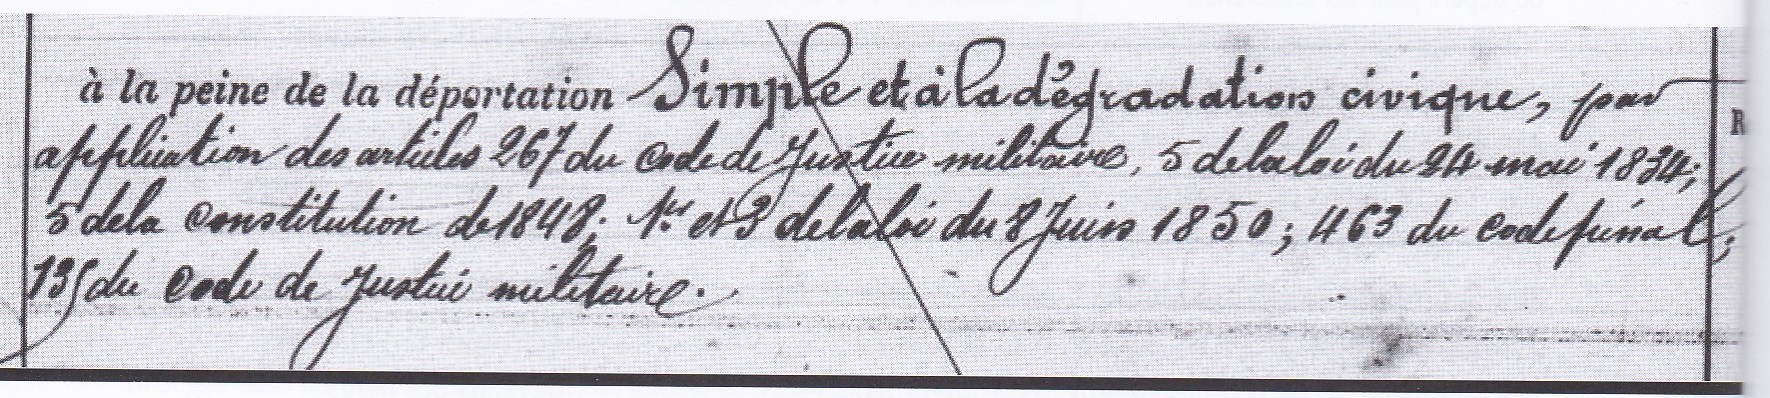 à la peine de la déportation Simple et à la dégradation civique, par
application des articles 267 du code de Justice militaire, 5 de la loi du 24 mai 1834;
5 de la Constitution de 1848; 1er et 3 de la loi du 8 Juin 1850; 463 du code pénal;
135 du code de Justice militaire.
R